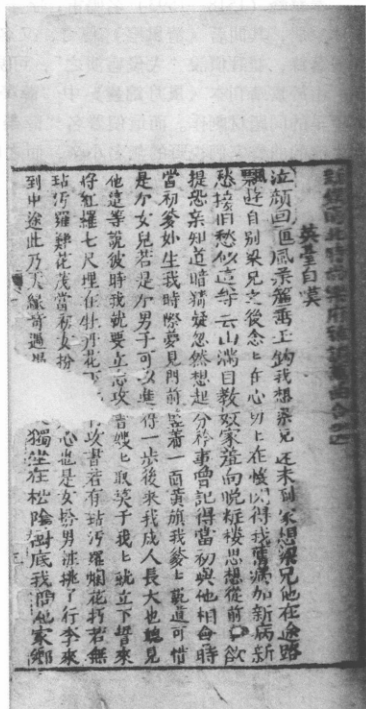 時尚樂府雅調萬曲合
英臺自嘆
泣顏回風柔簷馬上鈎我想梁兄还未到家想梁兄他在途路
飄遊自别梁兄之後念上在心切上在懷閃得我舊病加新病新
愁接旧愁似這等云山滿目教奴家羞向晚粧樓思想從前欲
提怨亲知道暗猜疑忽然想起分祚事曾記得當初與他相會時
當初爹妙生我時際夢見門前着一面黃旗我爹上覌道可惜
是个女兒若是个男子可以進得一步後來我成人長大也聽見
他這等說彼時我就要立志攻書嫂上取笑于我上就立下誓來
將紅羅七尺埋在牡丹花下攻書若有玷污羅爛花朽若無
玷污羅鮮花茂當初女扮心也是女扮男裝挑了行李來
到中途此乃天緣奇遇獨坐在松陰樹底我問他家鄉